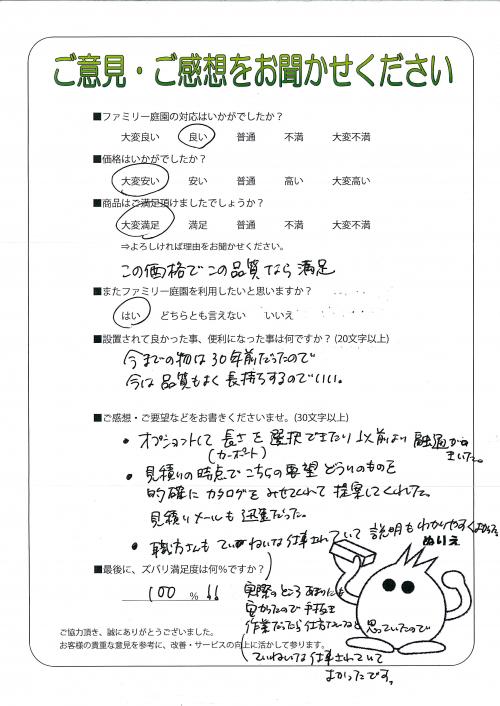 ご意見・ご感想をお聞かせください
■ファミリー庭園の対応はいかがでしたか？
大変良い 良い 普通 不満 大変不満
■価格はいかがでしたか？
大変安い 安い 普通 高い 大変高い
■商品はご満足頂けましたでしょうか？
大変満足 満足 普通 不満 大変不満
⇒よろしければ理由をお聞かせください。
この価格でこの品質なら満足
■またファミリー庭園を利用したいと思いますか？
はい どちらとも言えない いいえ
■設置されて良かった事、便利になった事は何ですか？(20文字以上)
今までの物は30年前だったので
今は品質もよく長持ちするのでいい。
■ご感想・ご要望などをお書きくださいませ。(30文字以上)
・オプションして長さを選択できたり以前より融通がきいた。
(カーポート)
・見積りの時点でこちらの要望どういうものを
的確にカタログをみせてくれて提案してくれた。
見積りメールも迅速だった。
・職方さんもていねいな仕事されていて説明もわかりやすくよかった。
ぬりえ
■最後に、ズバリ満足度は何％ですか？
100 % !!
実際のところあまりにも
安かったので手抜き
作業だったら仕方ないなと思っていたので
ていねいな仕事されていて
よかったです。
ご協力頂き、誠にありがとうございました。
お客様の貴重な意見を参考に、改善・サービスの向上に活かして参ります。